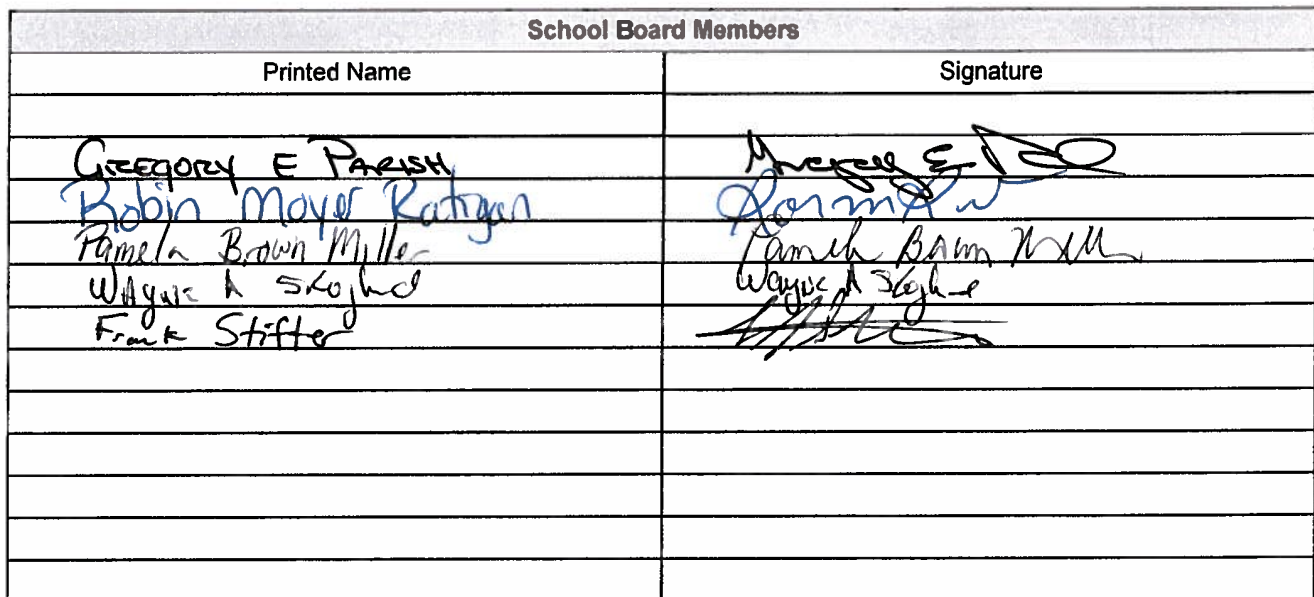 School Board Members
Printed Name Signature
GREGORY E PARISH Gregory E
Robin Moyer Ratigan Robin
Pamela Brown Miller Pamela Brown Miller
Wayne A Skoglund Wayne A Skoglund
Frank Stifter